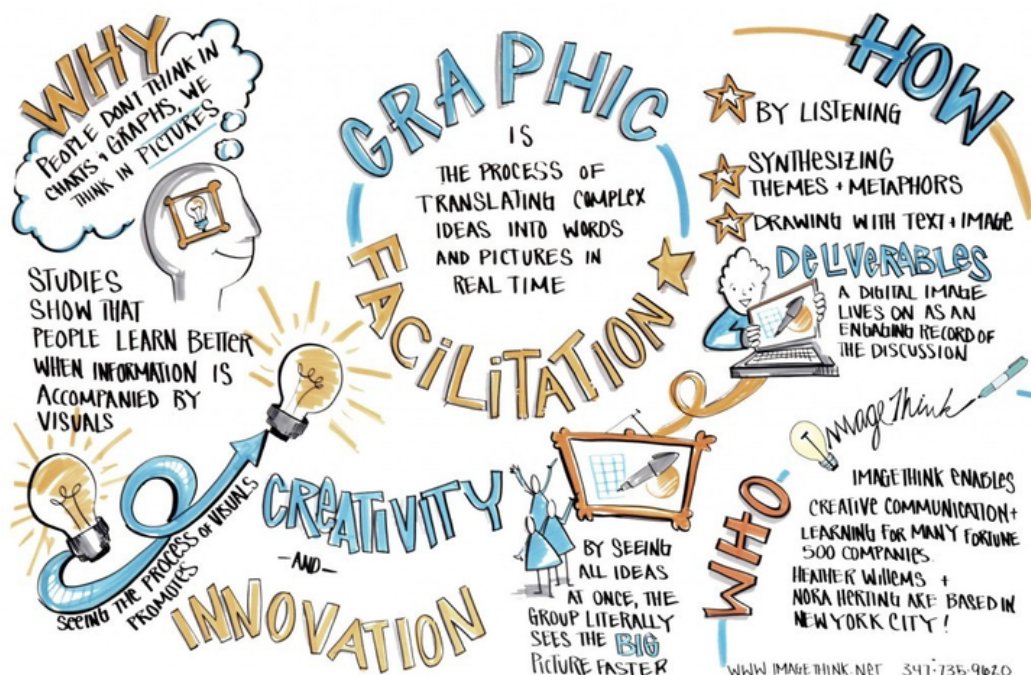 WHY
PEOPLE DON'T THINK IN
CHARTS + GRAPHS, WE
THINK IN PICTURES
STUDIES
SHOW THAT
PEOPLE LEARN BETTER
WHEN INFORMATION IS
ACCOMPANIED BY
VISUALS
SEEING THE PROCESS OF VISUALS
PROMOTES
CREATIVITY
-AND-
INNOVATION
GRAPHIC
IS
THE PROCESS OF
TRANSLATING COMPLEX
IDEAS INTO WORDS
AND PICTURES IN
REAL TIME
FACILITATION
BY SEEING
ALL IDEAS
AT ONCE, THE
GROUP LITERALLY
SEES THE BIG
PICTURE FASTER
HOW
BY LISTENING
SYNTHESIZING
THEMES + METAPHORS
DRAWING WITH TEXT + IMAGE
DELIVERABLES
A DIGITAL IMAGE
LIVES ON AS AN
ENGAGING RECORD OF
THE DISCUSSION
ImageThink
WHO
IMAGETHINK ENABLES
CREATIVE COMMUNICATION +
LEARNING FOR MANY FORTUNE
500 COMPANIES.
HEATHER WILLEMS +
NORA HERTING ARE BASED IN
NEW YORK CITY!
WWW.IMAGETHINK.NET 347-735-9620